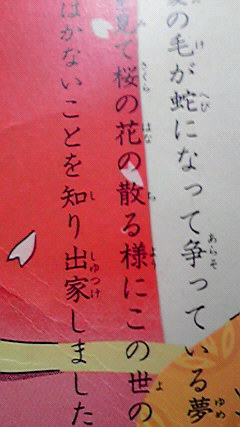 の毛が蛇になって争っている夢
見て桜の花の散る様にこの世の
はかないことを知り出家しました